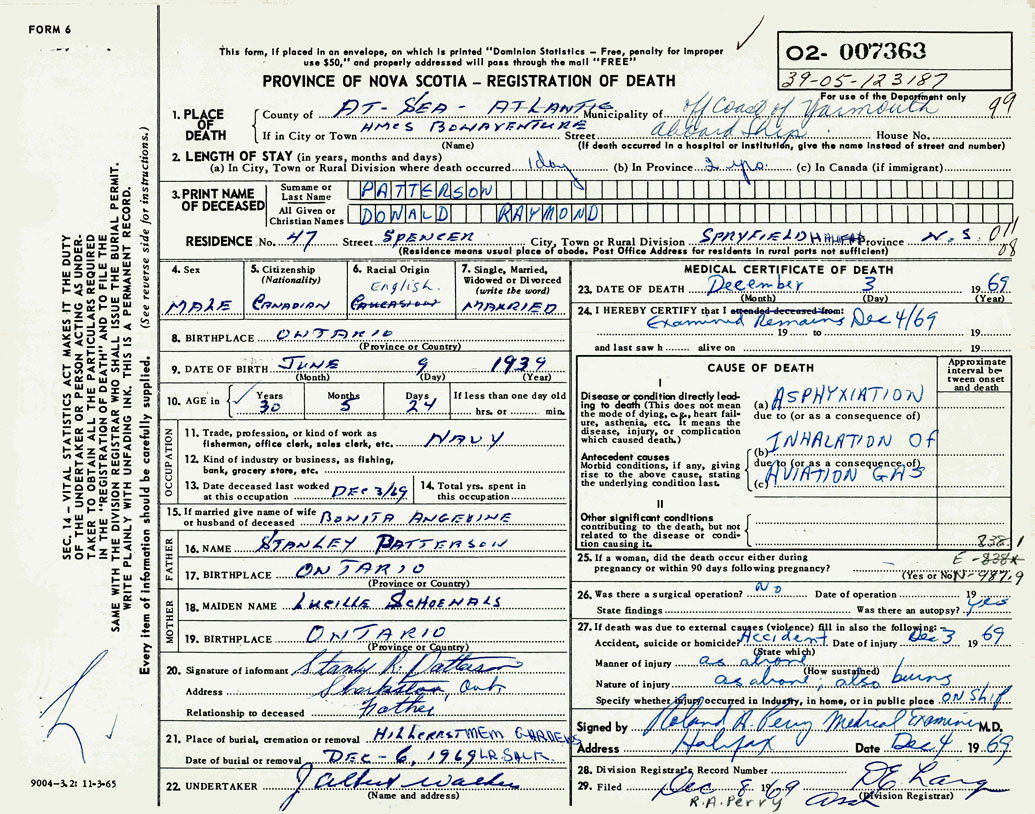 FORM 6
This form, if placed in an envelope, on which is printed "Dominion Statistics – Free, penalty for improper
use $50," and properly addressed will pass through the mail "FREE"
PROVINCE OF NOVA SCOTIA – REGISTRATION OF DEATH
02- 007363
39-05-123187
For use of the Department only
99
1. PLACE OF DEATH
County of AT-SEA - ATLANTIC Municipality of off Coast of Yarmouth
If in City or Town HMCS BONAVENTURE Street aboard Ship House No.
(Name) (If death occurred in a hospital or institution, give the name instead of street and number)
2. LENGTH OF STAY (in years, months and days)
(a) In City, Town or Rural Division where death occurred 1 day (b) In Province 2 yrs. (c) In Canada (if immigrant)
3. PRINT NAME OF DECEASED
Surname or Last Name PATTERSON
All Given or Christian Names DONALD RAYMOND
RESIDENCE No. 47 Street SPENCER City, Town or Rural Division SPRYFIELD HALIFAX Province N.S. 011
08
(Residence means usual place of abode. Post Office Address for residents in rural parts not sufficient)
4. Sex
MALE
5. Citizenship (Nationality)
CANADIAN
6. Racial Origin
English.
CAUCASION
7. Single, Married, Widowed or Divorced (write the word)
MARRIED
8. BIRTHPLACE ONTARIO
(Province or Country)
9. DATE OF BIRTH JUNE 9 1939
(Month) (Day) (Year)
10. AGE in Years Months Days If less than one day old
30 5 24 hrs. or min.
OCCUPATION
11. Trade, profession, or kind of work as
fisherman, office clerk, sales clerk, etc. NAVY
12. Kind of industry or business, as fishing,
bank, grocery store, etc.
13. Date deceased last worked
at this occupation DEC 3/69
14. Total yrs. spent in
this occupation
15. If married give name of wife
or husband of deceased BONITA ANGEVINE
FATHER
16. NAME STANLEY PATTERSON
17. BIRTHPLACE ONTARIO
(Province or Country)
MOTHER
18. MAIDEN NAME LUCILLE SCHOENALS
19. BIRTHPLACE ONTARIO
(Province or Country)
20. Signature of informant Stanly R. Patterson
Address Sherkston, Ont.
Relationship to deceased Father
21. Place of burial, cremation or removal HILLCREST MEM GARDENS
Date of burial or removal DEC - 6, 1969
22. UNDERTAKER J Albert Walker
(Name and address)
MEDICAL CERTIFICATE OF DEATH
23. DATE OF DEATH December 3 1969
(Month) (Day) (Year)
24. I HEREBY CERTIFY that I attended deceased from:
Examined Remains Dec 4/69
19 to 19
and last saw h alive on 19
CAUSE OF DEATH
Approximate interval between onset and death
I
Disease or condition directly leading to death (This does not mean the mode of dying, e.g., heart failure, asthenia, etc. It means the disease, injury, or complication which caused death.)
(a) ASPHYXIATION
due to (or as a consequence of)
(b) INHALATION OF
Antecedent causes
Morbid conditions, if any, giving rise to the above cause, stating the underlying condition last.
due to (or as a consequence of)
(c) AVIATION GAS
II
Other significant conditions
contributing to the death, but not related to the disease or condition causing it.
838.1
25. If a woman, did the death occur either during
pregnancy or within 90 days following pregnancy?
E-838x
(Yes or No) N-987.9
26. Was there a surgical operation? No Date of operation 19
State findings Was there an autopsy? Yes
27. If death was due to external causes (violence) fill in also the following:
Accident, suicide or homicide? Accident Date of injury Dec 3 1969
(State which)
Manner of injury as above
(How sustained)
Nature of injury as above, also burns
Specify whether injury occurred in industry, in home, or in public place ON SHIP
Signed by Roland A. Perry Medical Examiner M.D.
Address Halifax Date Dec 4 1969
28. Division Registrar's Record Number
29. Filed Dec 8 1969
(Division Registrar)
R.A. Perry
SEC. 14 – VITAL STATISTICS ACT MAKES IT THE DUTY
OF THE UNDERTAKER OR PERSON ACTING AS UNDER-
TAKER TO OBTAIN ALL THE PARTICULARS REQUIRED
IN THE "REGISTRATION OF DEATH" AND TO FILE THE
SAME WITH THE DIVISION REGISTRAR WHO SHALL ISSUE THE BURIAL PERMIT.
WRITE PLAINLY WITH UNFADING INK. THIS IS A PERMANENT RECORD.
Every item of information should be carefully supplied. (See reverse side for instructions.)
9004–3.2: 11-3-65